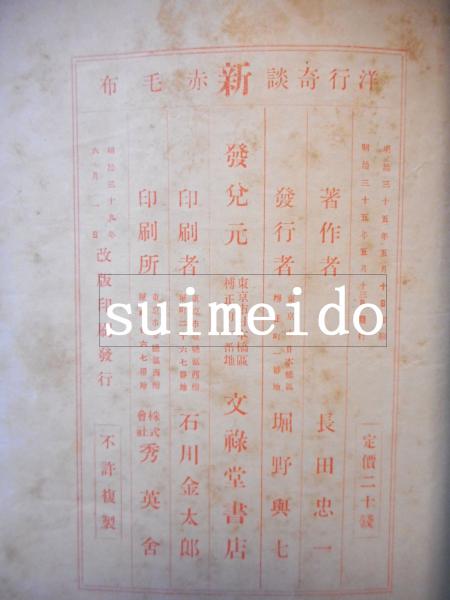 洋行奇談新赤毛布
明治三十五年五月十日印刷
明治三十五年五月十三日發行
定價二十錢
著作者 長田忠一
發行者 堀野與七
發兌元 東京市日本橋區 文祿堂書店
印刷者 石川金太郎
印刷所 株式會社 秀英舍
明治三十九年
六月一日 改版印刷發行
不許複製
suimeido